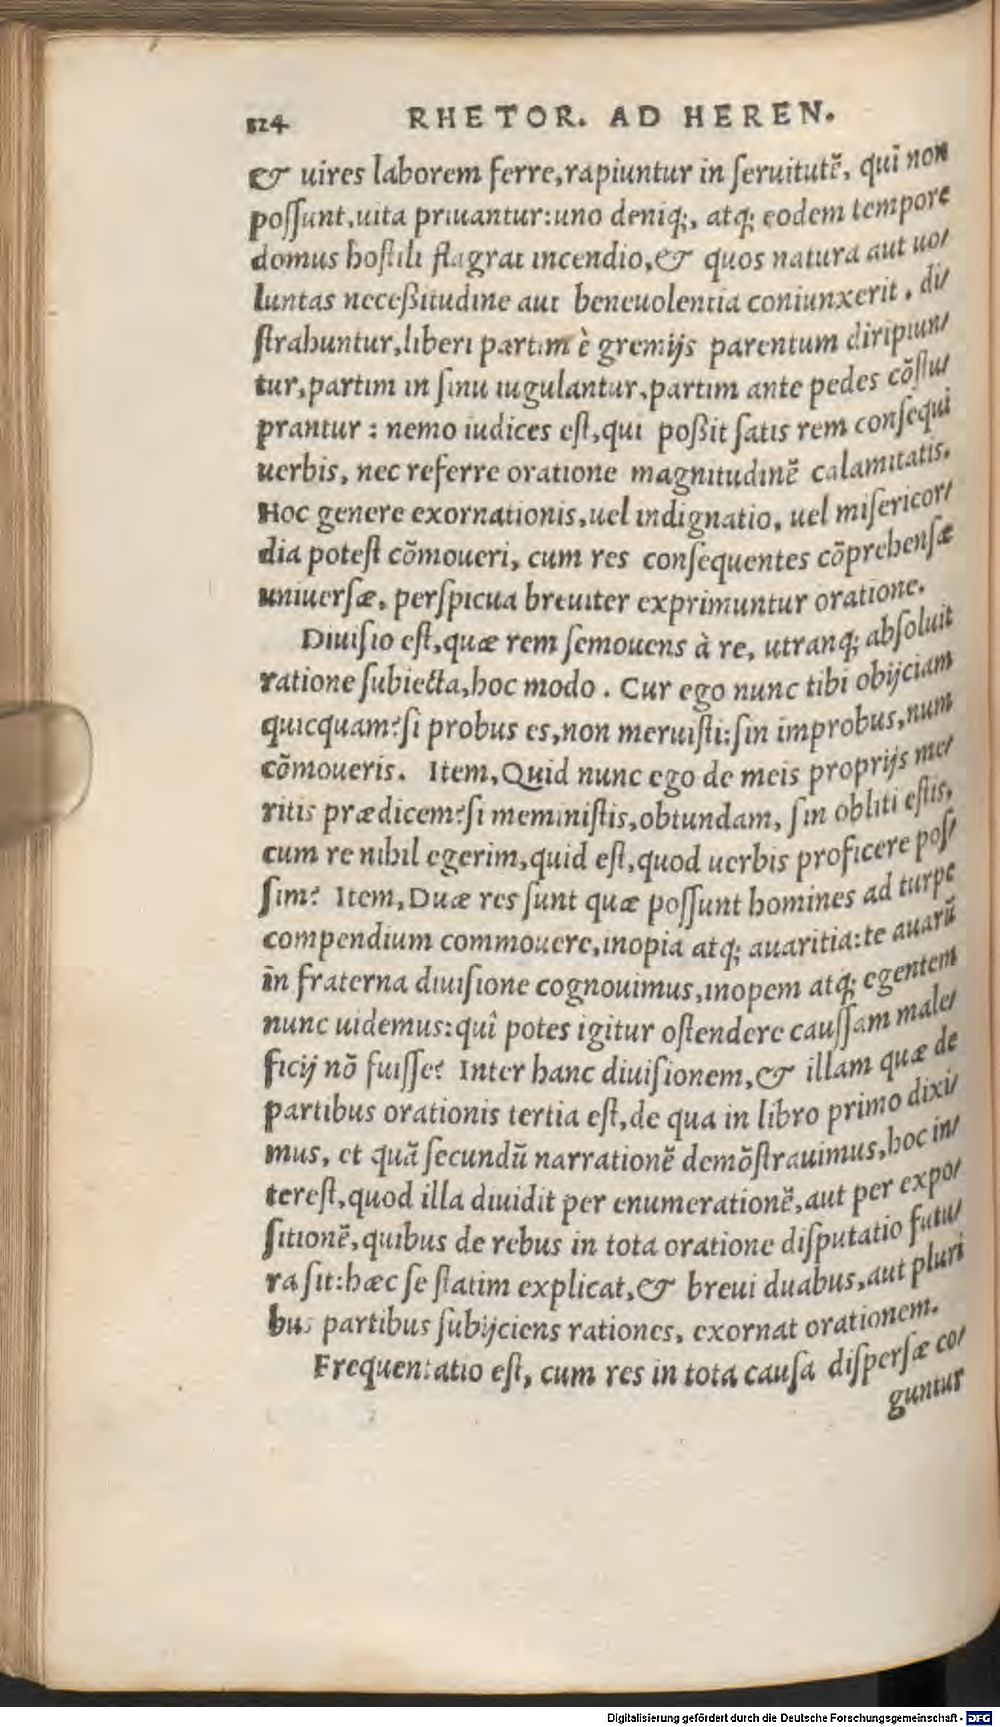 124 RHETOR. AD HEREN.
& uires laborem ferre, rapiuntur in ſeruitutẽ, quĩ non
poſſunt, uita priuantur: uno deniq;, atq; eodem tempore
domus hoſtili flagrat incendio, & quos natura aut uo/
luntas neceßitudine aut beneuolentia coniunxerit, di/
ſtrahuntur, liberi partim è gremijs parentum diripiun/
tur, partim in ſinu iugulantur, partim ante pedes cõſtu/
prantur: nemo iudices eſt, qui poßit ſatis rem conſequi
uerbis, nec referre oratione magnitudinẽ calamitatis.
Hoc genere exornationis, uel indignatio, uel miſericor/
dia poteſt cõmoueri, cum res conſequentes cõprehenſæ
uniuerſæ, perſpicua breuiter exprimuntur oratione.
Diuiſio eſt, quæ rem ſemouens à re, utranq; abſoluit
ratione ſubiecta, hoc modo. Cur ego nunc tibi obijciam
quicquam? ſi probus es, non meruiſti: ſin improbus, num
cõmoueris. Item, Quid nunc ego de meis proprijs me/
ritis prædicem? ſi meminiſtis, obtundam, ſin obliti eſtis,
cum re nihil egerim, quid eſt, quod uerbis proficere poſ/
ſim? Item, Duæ res ſunt quæ poſſunt homines ad turpe
compendium commouere, inopia atq; auaritia: te auarũ
in fraterna diuiſione cognouimus, inopem atq; egentem
nunc uidemus: quî potes igitur oſtendere cauſſam male/
ficij nõ fuiſſe? Inter hanc diuiſionem, & illam quæ de
partibus orationis tertia eſt, de qua in libro primo dixi/
mus, et quã ſecundũ narrationẽ demõſtrauimus, hoc in/
tereſt, quod illa diuidit per enumerationẽ, aut per expo/
ſitionẽ, quibus de rebus in tota oratione diſputatio futu/
ra ſit: hæc ſe ſtatim explicat, & breui duabus, aut pluri
bus partibus ſubijciens rationes, exornat orationem.
Frequentatio eſt, cum res in tota cauſa diſperſæ co/
guntur
Digitalisierung gefördert durch die Deutsche Forschungsgemeinschaft - DFG